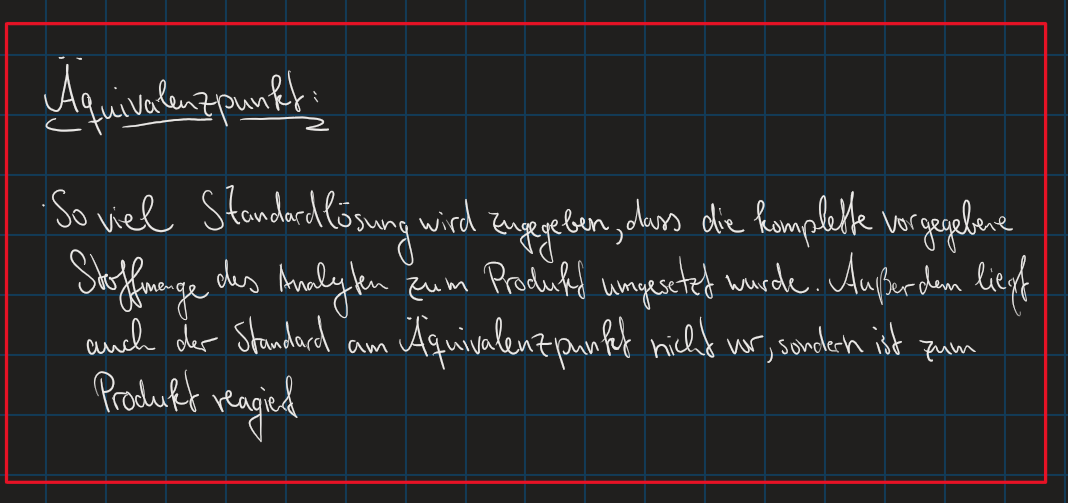 Äquivalenzpunkt:
·So viel Standardlösung wird zugegeben, dass die komplette vorgegebene
Stoffmenge des Analyten zum Produkt umgesetzt wurde. Außerdem liegt
auch der Standard am Äquivalenzpunkt nicht vor, sondern ist zum
Produkt reagiert